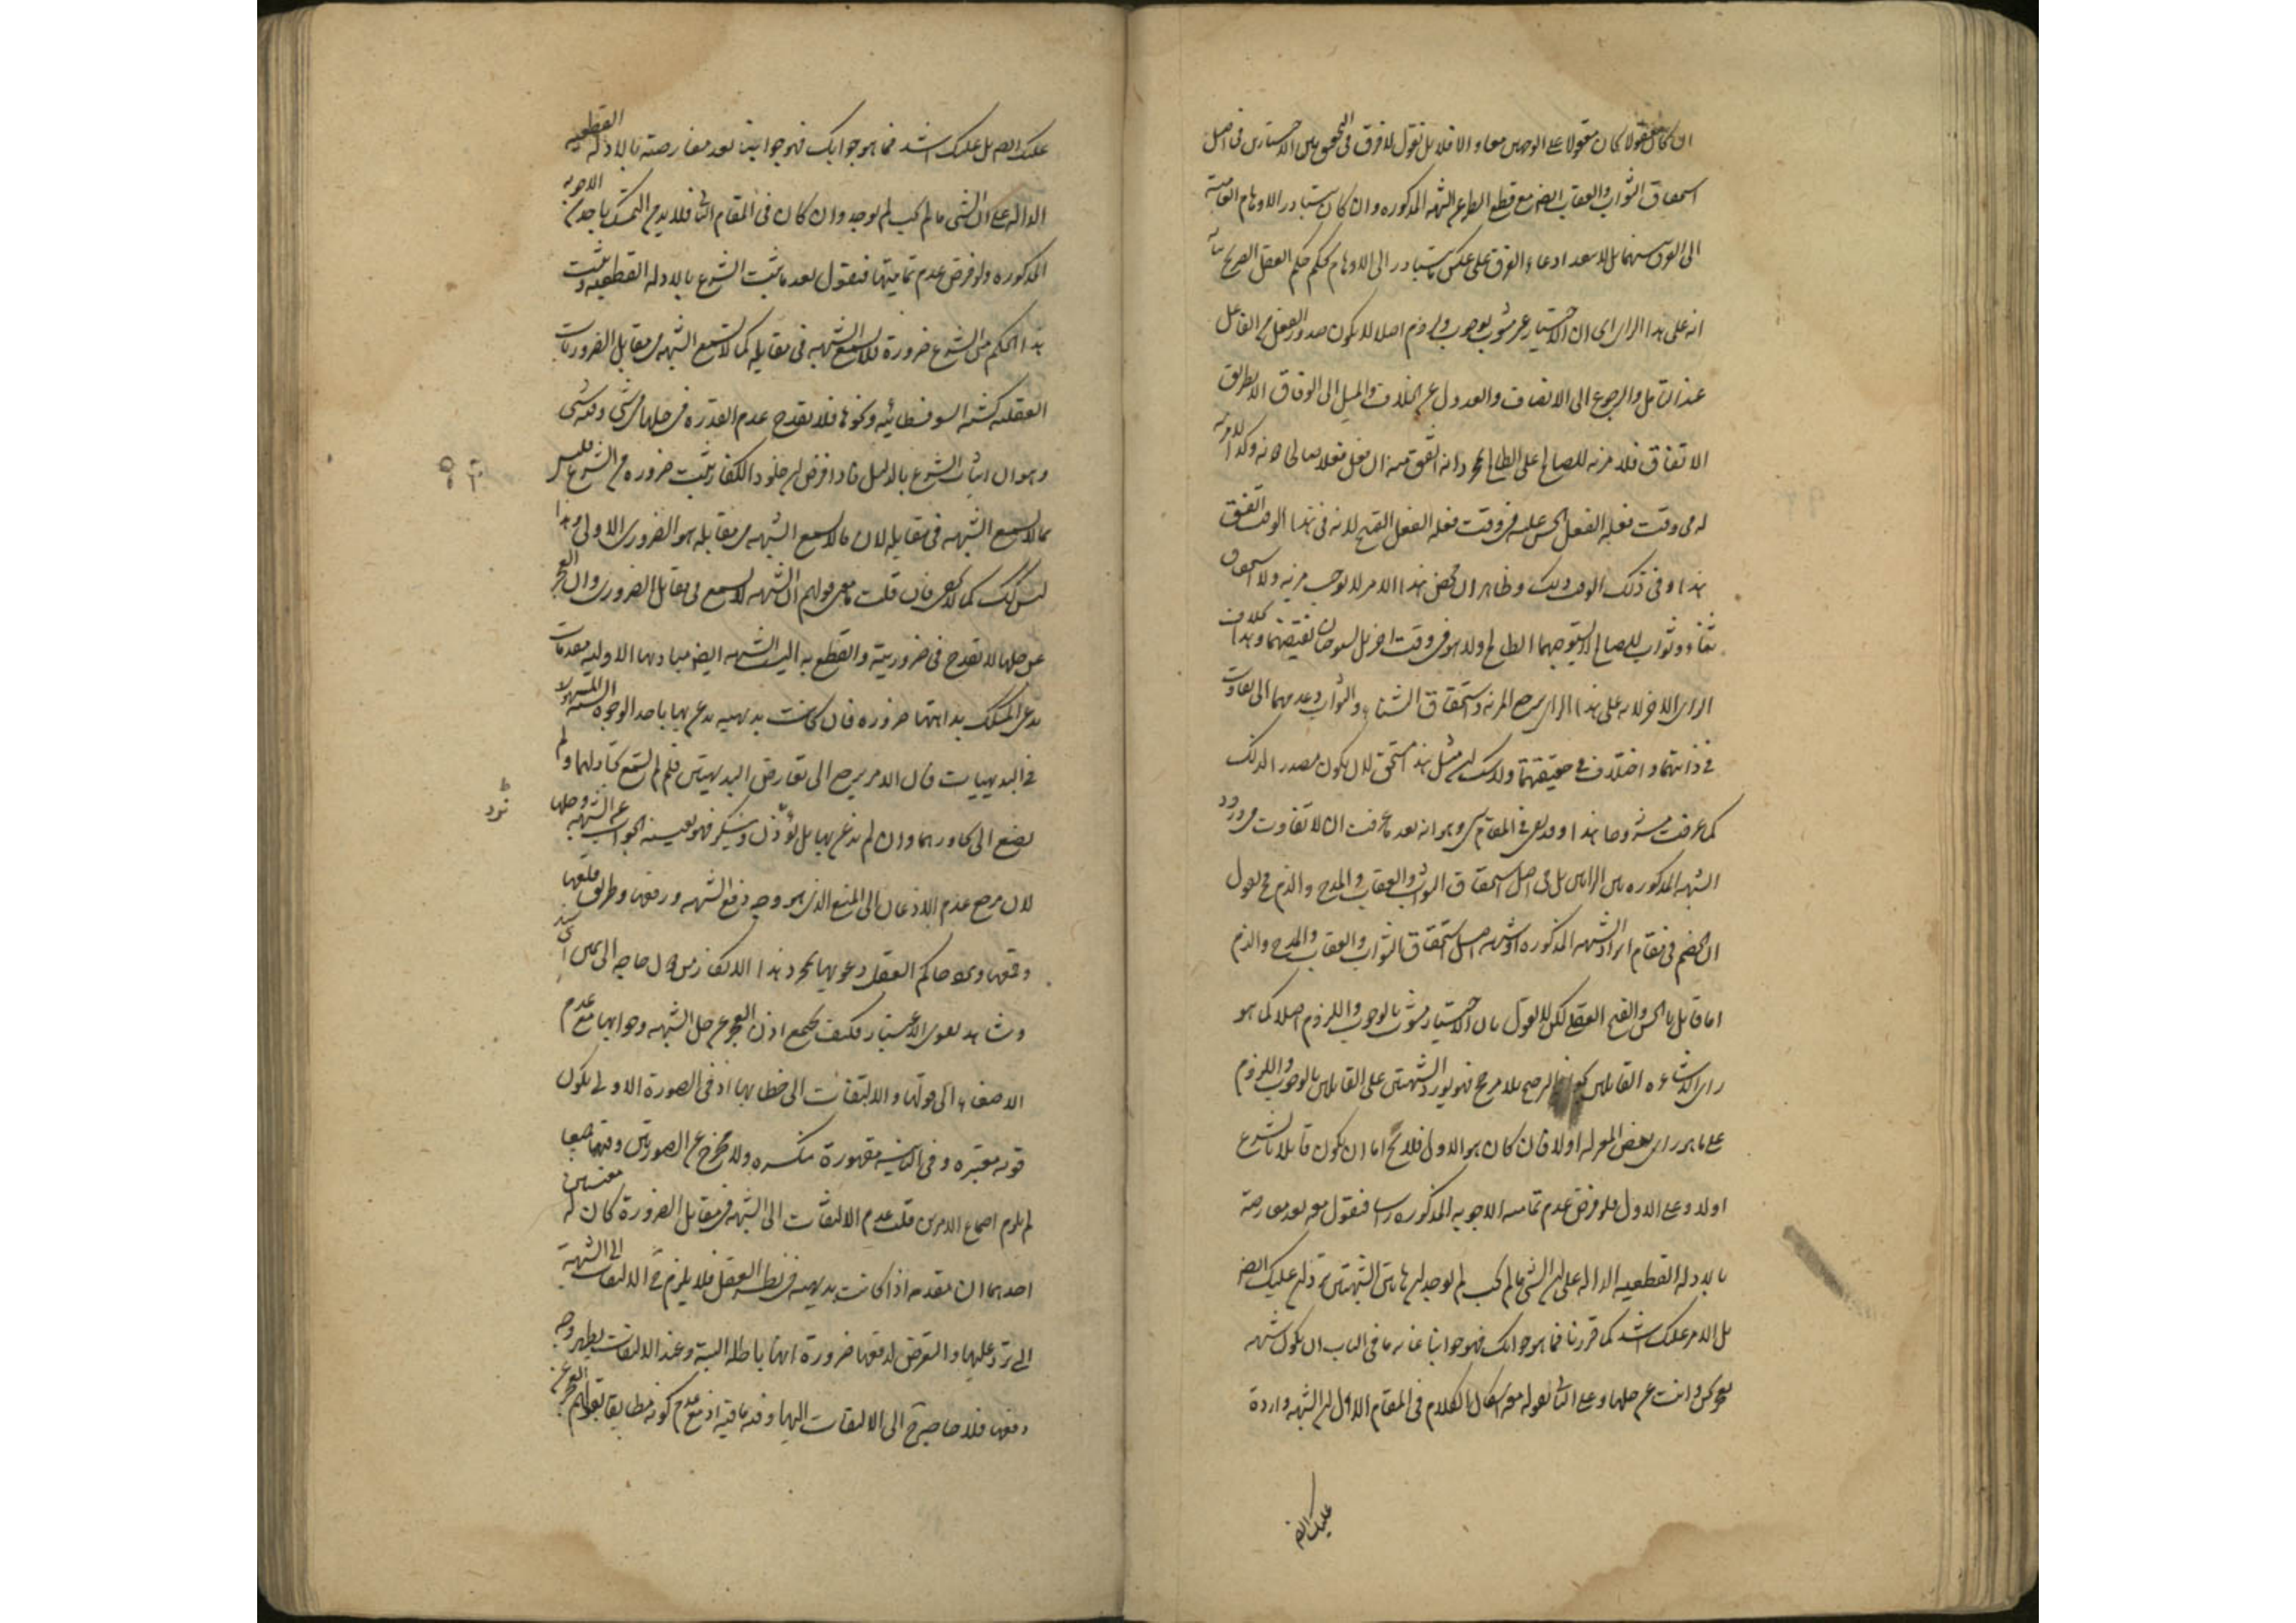 ان كان مقولا كان مقولا على الوجهين معا والا فلا بل نقول لا فرق فى التحقيق بين الاختيارين فى اصل
استحقاق الثواب والعقاب ايضا مع قطع النظر عن الشبهه المذكوره وان كان يتبادر الاوهام العاميه
الى الفرق بينهما بل لا يبعد ادعاء الفرق على عكس ما يتبادر الى الاوهام بحكم حكم العقل الصريح
انه على هذا الراى اى ان الاختيار غير مشوب بوجوب ولزوم اصلا لا يكون صدور الفعل من الفاعل
عند التامل والرجوع الى الانصاف والعدول عن الخلاف والميل الى الوفاق الا بطريق
الاتفاق فلا مزيه للصالح على الطالح الا بمجرد انه اتفق منه ان فعل فعلا
له فى وقت فعله الفعل الحسن عليه فى وقت فعله الفعل القبيح لانه فى هذا الوقت اتفق
هذا وفى ذلك الوقت ذلك وظاهر ان محض هذا الامر لا يوجب مزيه ولا استحقاق
ثناء وثواب للصالح لا يستوجبهما الطالح ولا هو فى وقت اخر بل يستوجبان نقيضهما وهذا بخلاف
الراى الاخر لانه على هذا الراى يرجع المزيه واستحقاق الثناء والثواب وعدمهما الى تفاوت
فى ذاتيهما واختلاف فى حقيقتهما ولا شك ان مثل هذا مستحق لان يكون مصدرا لذلك
كما عرفت مشروحا هذا وقد بقى فى المقام شى وهو انه بعد ما عرفت ان لا تفاوت فى ورود
الشبهه المذكوره بين الرايين بل فى اصل استحقاق الثواب والعقاب والمدح والذم فح نقول
ان الخصم فى مقام ايراد الشبهه المذكوره او شبهه اصل استحقاق الثواب والعقاب والمدح والذم
اما قابل بالحسن والقبح العقلى لكن لا يقول بان الاختيار مشوب بالوجوب واللزوم اصلا كما هو
راى الاشاعره القايلين بجواز الترجيح بلا مرجح فهو يورد الشبهتين على القايلين بالوجوب واللزوم
على ما هو راى بعض المعتزله اولا فان كان هو الاول فلا يخ اما ان يكون قابلا بالشرع
اولا وعلى الاول فلو فرض عدم تماميه الاجوبه المذكوره راسا فنقول معه بعد معارضته
بالادله القطعيه الداله على ان الشى ما لم يجب لم يوجد ان هاتين الشبهتين واردتان عليك ايضا
بل الامر عليك اشد كما قررنا فما هو جوابك فهو جوابنا غايه ما فى الباب ان يكون شبهه
نعجز نحن وانت عن حلها وعلى الثانى نقول معه الكلام فى المقام الاول ان الشبهه واردة
عليك ايضا
عليك ايضا بل عليك اشد فما هو جوابك فهو جوابنا بعد معارضته بالادله القطعيه
الداله على ان الشى ما لم يجب لم يوجد وان كان فى المقام الثانى فلا بد من التمسك باحدى الاجوبه
المذكوره ولو فرض عدم تماميتها فنقول بعد ما ثبت الشرع بالادله القطعيه وثبت
هذا الحكم من الشرع ضرورة فلا يسمع الشبهه فى مقابله كما لا يسمع الشبهه فى مقابل الضروريات
العقليه كشبه السوفسطائيه ونحوها فلا يقدح عدم القدره فى حلها فى شى وفيه شى
وهو ان اثبات الشرع بالدليل فاذا فرض ان خلود الكفار يثبت ضروره من الشرع فليس
مما لا يسمع الشبهه فى مقابله لان ما لا يسمع الشبهه فى مقابله هو الضرورى الاولى وهذا
ليس كذلك كما لا يخفى فان قلت ما معنى قولهم ان الشبهه لا يسمع فى مقابل الضرورى وان العجز
عن حلها لا يقدح فى ضروريته والقطع به اليست الشبهه ايضا مباديها الاوليه مقدمات
يدعى المشكك بداهتها ضروره فان كانت بديهيه يذعن بها باحد الوجوه
فى البديهيات فان الامر يرجع الى تعارض البديهيتين فلم لم يستمع تجادلهما ولم
يضع الى تحاورهما وان لم يذعن بها بل وينكر فهو بعينه الجواب عن الشبهه وحلها
لان مرجع عدم الاذعان الى المنع الذى هو وجه دفع الشبهه ورفعها وطريق قلعها
وقمعها
وشاهد الاعتبار فكيف يجتمع اذن العجز عن حل الشبهه وجوابها مع عدم
الاصغاء الى قولها والالتفات الى خطابها اذ فى الصورة الاولى يكون
قويه معتبره وفى الثانيه مقهورة منكسره ولا مخرج عن الصورتين
لم يلزم اجتماع الامرين قلت عدم الالتفات الى الشبهه فى مقابل الضرورة كان له معنيين
احدهما ان مقدمه اذا كانت بديهيه فى نظر العقل فلا يلزم ح الالتفات الى الشبهة
التى ترد عليها والتعرض لدفعها ضرورة انها باطله البتة وعند الالتفات يظهر وجه
دفعها فلا حاجة ح الى الالتفات اليها وفيه ما فيه اذ مع عدم كونه مطابقا لقولهم العجز عن